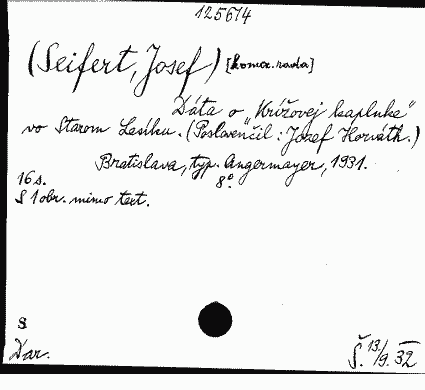 125614
(Seifert, Josef) [komor. rada]
Dáta o „Krížovej kaplnke“
vo Starom Lesíku. (Poslovenčil: Jozef Horváth.)
Bratislava, typ. Angermayer, 1931.
16 s. 8°.
S 1 obr. mimo text.
S
Dar. Š. 13/9. 32